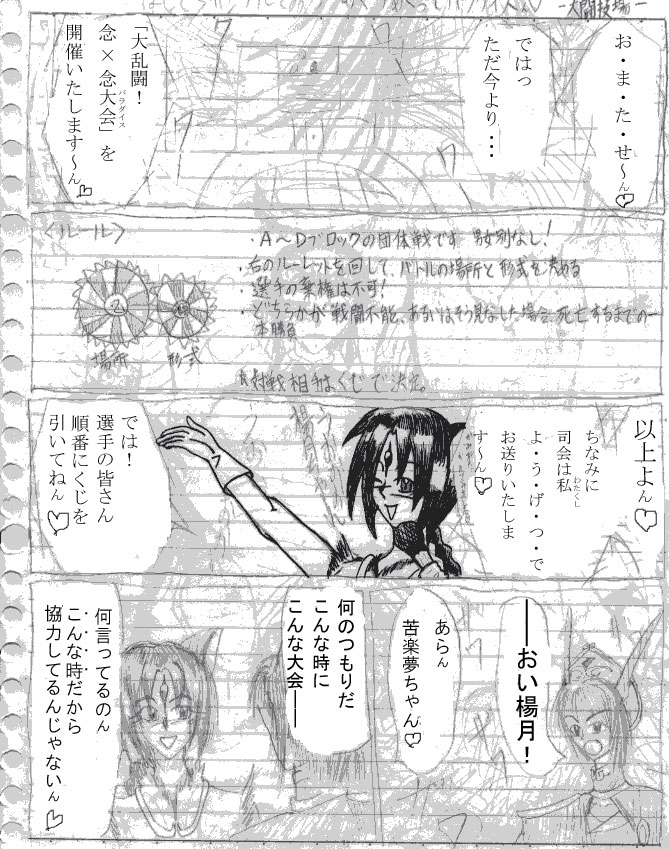 ー大闘技場ー
お・ま・た・せ〜ん♡
ではっ
ただ今より・・・
「大乱闘！
念×念大会」を
パラダイス
開催いたします〜ん♡
〈ルール〉
・A〜Dブロックの団体戦です 男女別なし！
・右のルーレットを回して、バトルの場所と形式を決める
・選手の棄権は不可！
・どちらかが戦闘不能、あるいはそう見なした場合、死亡するまでの一
本勝負
場所
形式
対戦相手はくじで決定。
以上よん♡
ちなみに
司会は私
わたくし
よ・う・げ・つ・で
お送りいたしま
す〜ん♡
では！
選手の皆さん
順番にくじを
引いてねん♡
――おい楊月！
あらん
苦楽夢ちゃん♡
何のつもりだ
こんな時に
こんな大会――
何言ってるのん
こんな時だから
協力してるんじゃないん♡